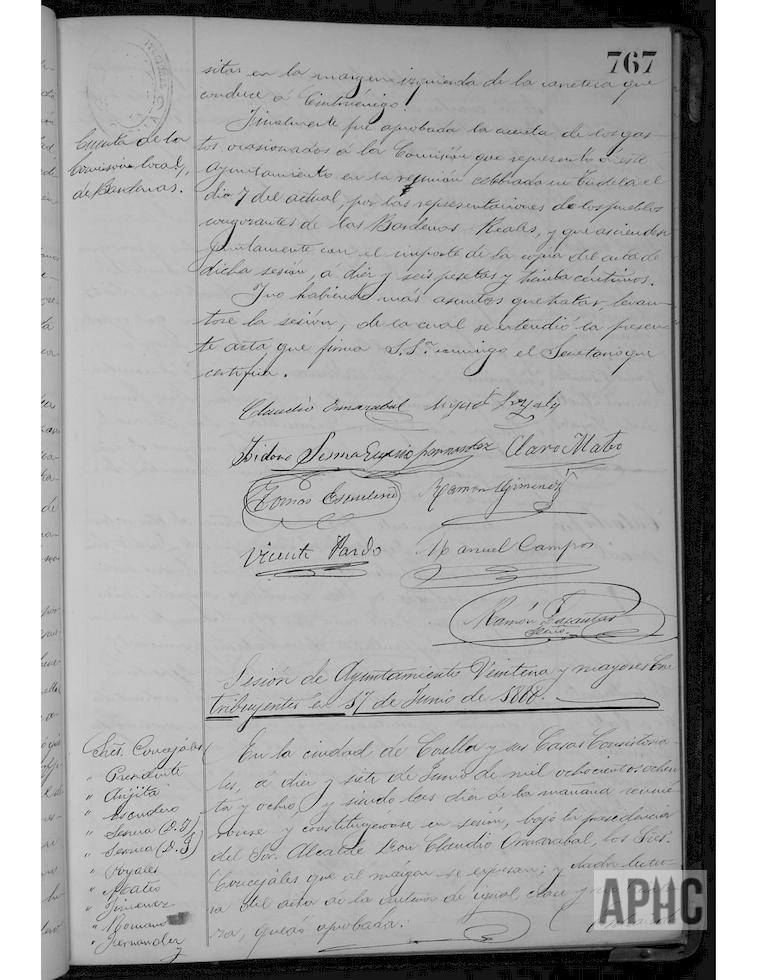 767
sitas en la margen izquierda de la carretera que
conduce á Cintruénigo.
Cuenta de la
Comisión local
de Bardenas.
Finalmente fué aprobada la cuenta de los gas-
tos ocasionados á la Comisión que representó á este
Ayuntamiento en la reunión celebrada en Tudela el
dia 7 del actual, por las representaciones de los pueblos
congozantes de las Bardenas Reales, y que asciende
juntamente con el importe de la copia del acta de
dicha sesión, á diez y seis pesetas y treinta céntimos.
Y no habiendo más asuntos que tratar, levan-
tose la sesión, de la cual se extendió la presen-
te acta que firma S.Sª. conmigo el Secretario que
certifica.
Claudio Omarabal
Isidoro Sesma Eugenio Fernandez Claro Mateo
Tomás Escudero Ramon Gimenez
Vicente Pardo Manuel Campos
Ramón
Srio.
Sesión de Ayuntamiento Veintena y mayores Con-
tribuyentes en 17 de Junio de 1888.
Sres. Concejales
" Presidente
" Arjita
" Escudero
" Sesma (D. I)
" Sesma (D. J)
" Royales
" Mateo
" Jimenez
" Romano
" Fernandez
En la ciudad de Corella y sus Casas Consistoria-
les, á diez y siete de Junio de mil ochocientos ochen-
ta y ocho, y siendo las diez de la mañana reunie-
ronse y constituyéronse en sesión, bajo la presidencia
del Sor. Alcalde Don Claudio Omarabal, los Sres.
Concejales que al margen se expresan; y dada lectu-
ra del acta de la última de igual clase y
ra, quedó aprobada.
APHC